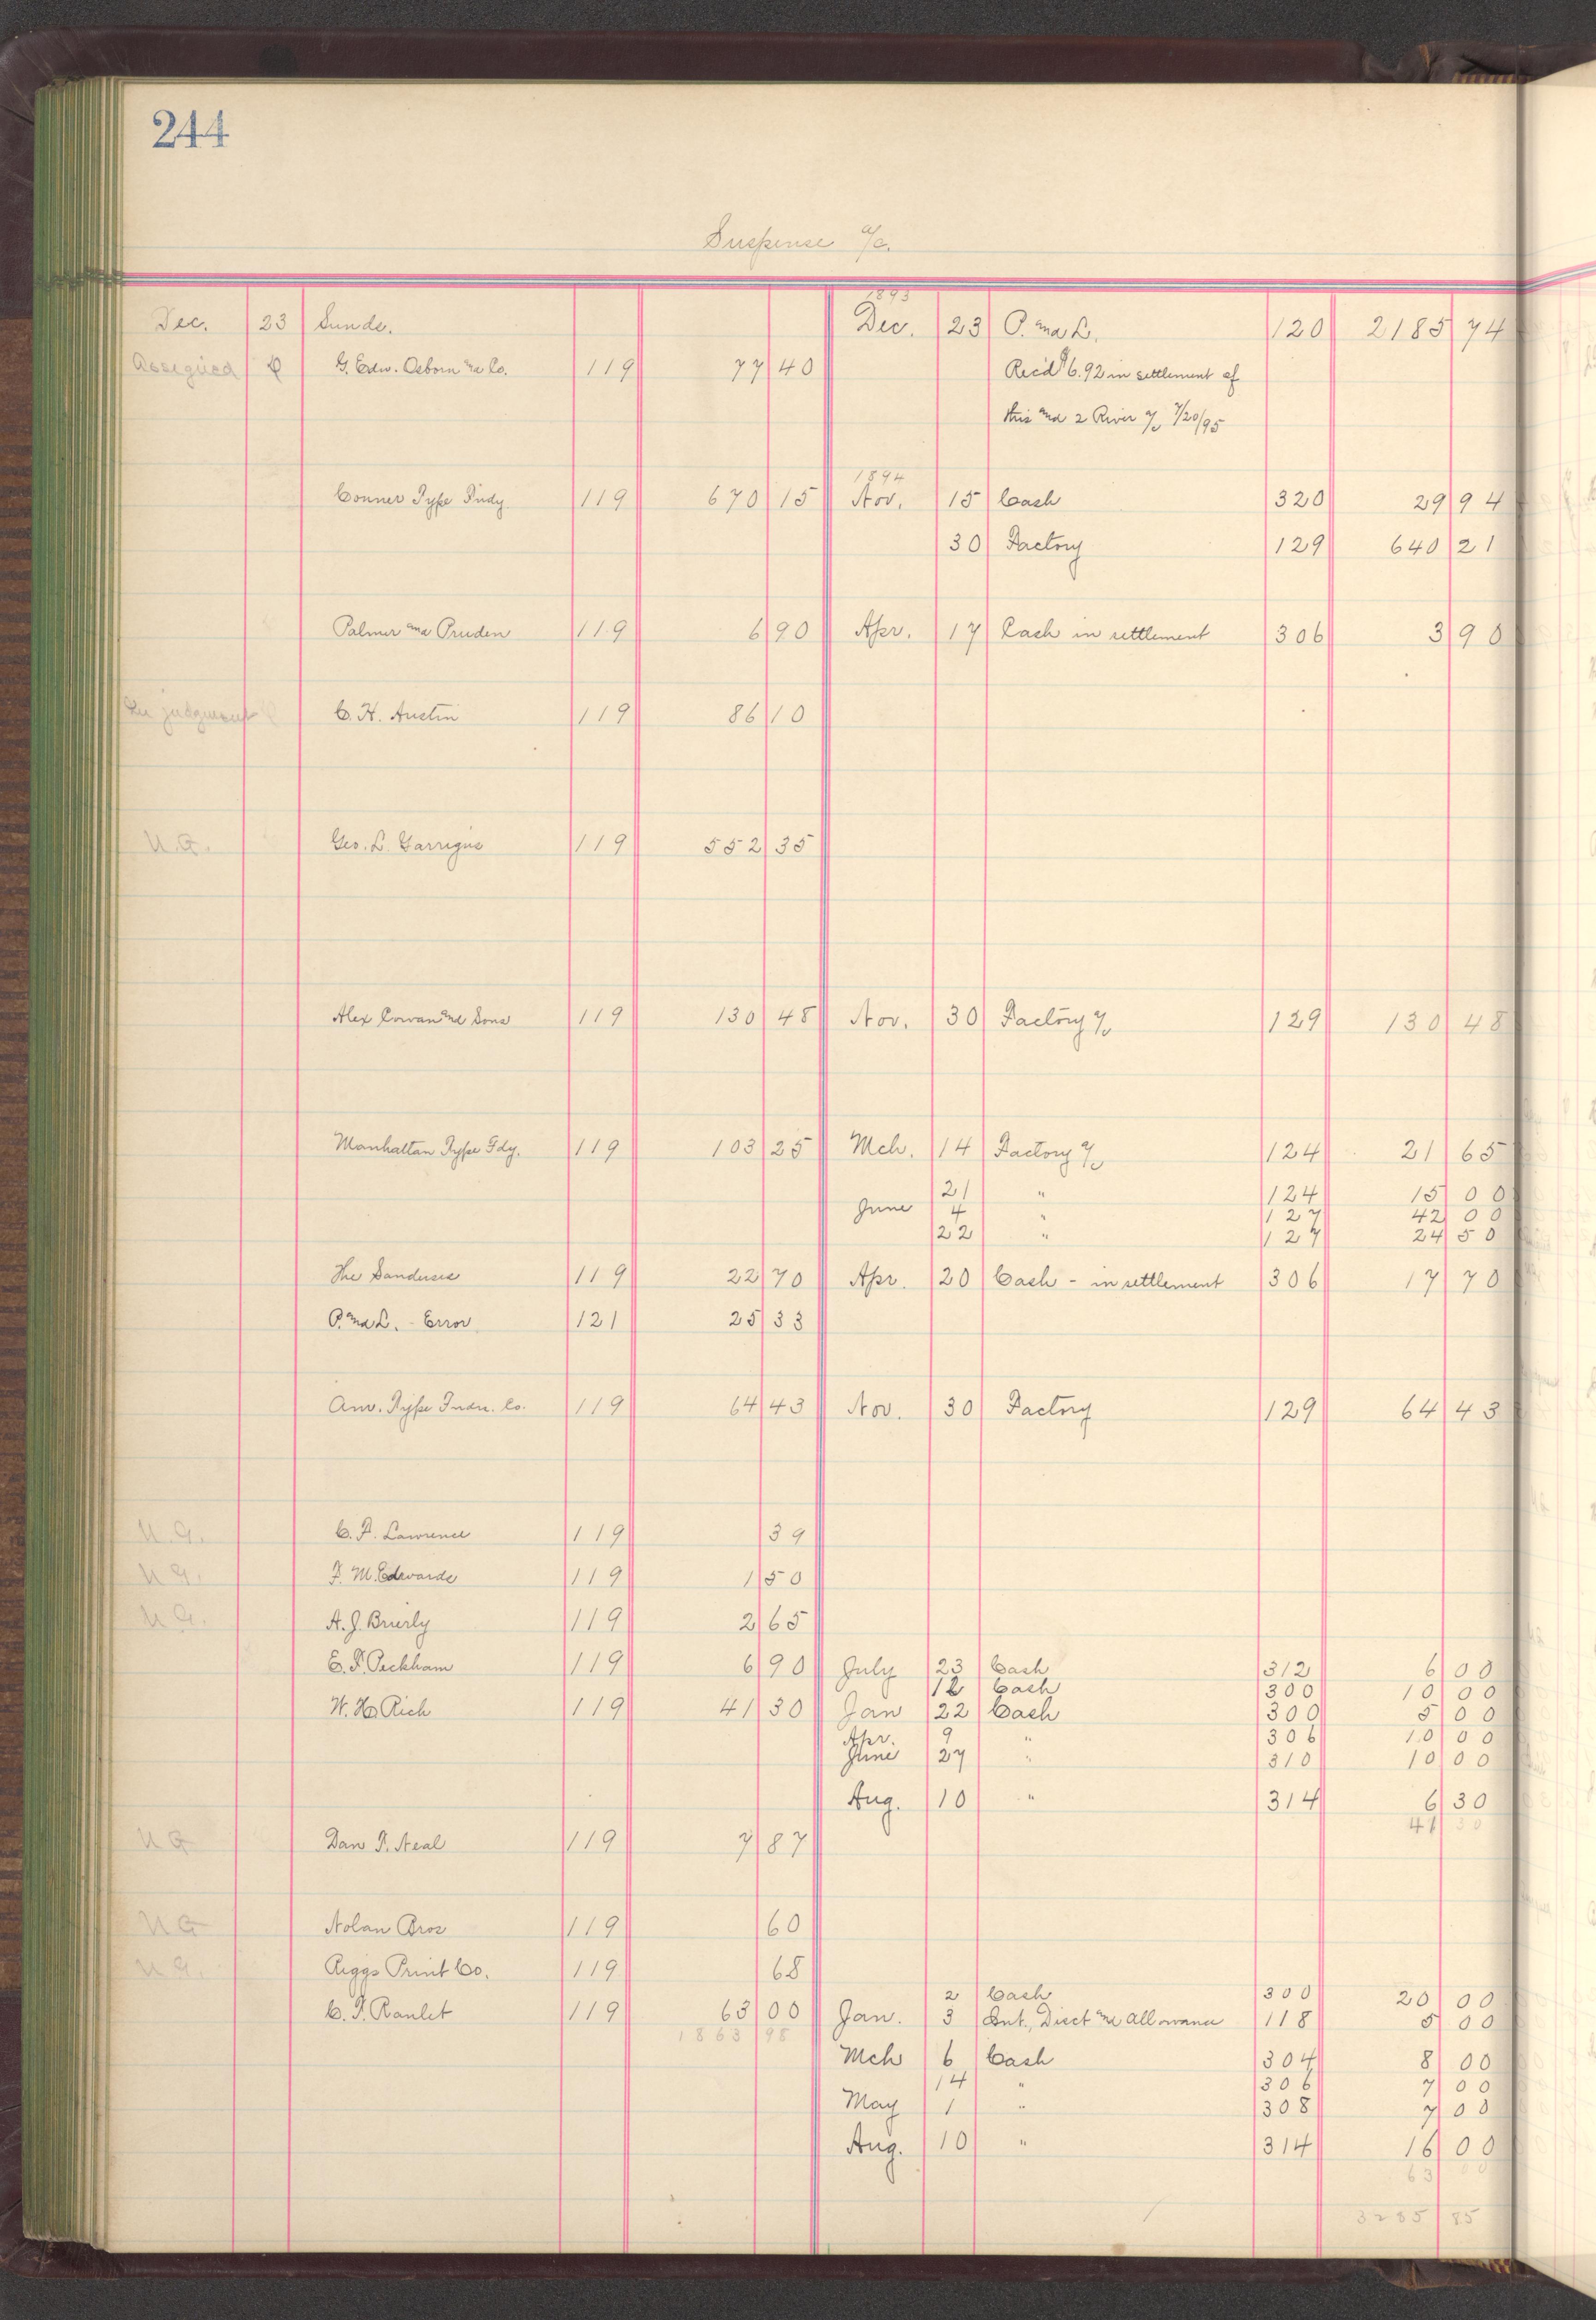 244
Suspense a/c.
1893
Dec. 23 Sunds. Dec. 23 P. and L. 120 2185 74
Assigned G. Edw. Osborn and Co. 119 77 40 Rec'd $6.92 in settlement of
this and 2 River a/c 7/20/95
1894
Conner Type Fndy. 119 670 15 Nov. 15 Cash 320 29 94
30 Factory 129 640 21
Palmer and Pruden 119 6 90 Apr. 17 Cash in settlement 306 3 90
In judgment C. H. Austin 119 86 10
N.G. Geo. L. Garrigus 119 552 35
Alex Cowan and Sons 119 130 48 Nov. 30 Factory a/c 129 130 48
Manhattan Type Fdy. 119 103 25 Mch. 14 Factory a/c 124 21 65
21 " 124 15 00
June 4 " 127 42 00
22 " 127 24 50
The Sanduses 119 22 70 Apr. 20 Cash - in settlement 306 17 70
P. and L. - Error 121 25 33
Am. Type Fndn. Co. 119 64 43 Nov. 30 Factory 129 64 43
N.G. C. F. Lawrence 119 39
N.G. F. M. Edwards 119 1 50
N.G. A. J. Brierly 119 2 65
E. F. Peckham 119 6 90 July 23 Cash 312 6 00
12 Cash 300 10 00
W. H. Rich 119 41 30 Jan 22 Cash 300 5 00
Apr. 9 " 306 10 00
June 27 " 310 10 00
Aug. 10 " 314 6 30
41 30
N G Dan F. Neal 119 7 87
N G Nolan Bros 119 60
N.G. Riggs Print Co. 119 68
2 Cash 300 20 00
C. F. Ranlet 119 63 00 Jan. 3 Int., Disct and Allowance 118 5 00
1863 98
Mch 6 Cash 304 8 00
14 " 306 7 00
May 1 " 308 7 00
Aug. 10 " 314 16 00
63 00
3285 85